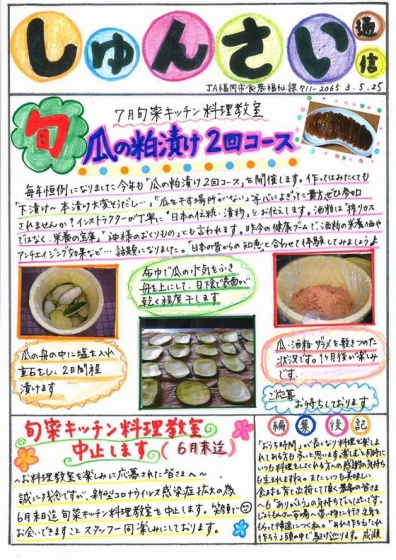 しゅんさい通信
JA福岡市食農福祉課 711-2065 3.5.25
7月旬菜キッチン料理教室
旬 瓜の粕漬け2回コース
毎年恒例になりました今年も「瓜の粕漬け2回コース」を開催します。作ってはみたくても
「下漬け～本漬け大変そうだし…」「瓜を干す場所がない」
されませんか？インストラクターが丁寧に「日本の伝統、漬物」をお伝えします。酒粕は搾りカス
ではなく、栄養の宝庫。"神様のおくりもの"とも言われます。昨今の健康ブームで酒粕の栄養価や
アンチエイジング効果など… 話題になりました。「日本の昔からの知恵」と合わせて体験してみましょう♪
瓜の舟の中に塩を入れ
重石をし、2日間程
漬けます
布巾で瓜の水気をふき
舟を上にして、日陰で表面が
乾く程度干します。
瓜・酒粕・ザラメを敷きつめた
状況です。1ヶ月後が楽しみ
です。
ご応募
お待ちしております
旬菜キッチン料理教室
中止します（6月末迄）
～お料理教室を楽しみに応募された皆さまへ～
誠に残念ですが、新型コロナウイルス感染症拡大の為
6月末日迄 旬菜キッチン料理教室を中止します。皆様に
お会いできますことスタッフ一同楽しみにしております。
編集後記
「おうち時間」が長くなり料理を楽しま
れてある方も多いと思います。楽しむと同時に
いつも料理をしてくれる方への感謝の気持ち
も生まれますね。またいつも美味しい